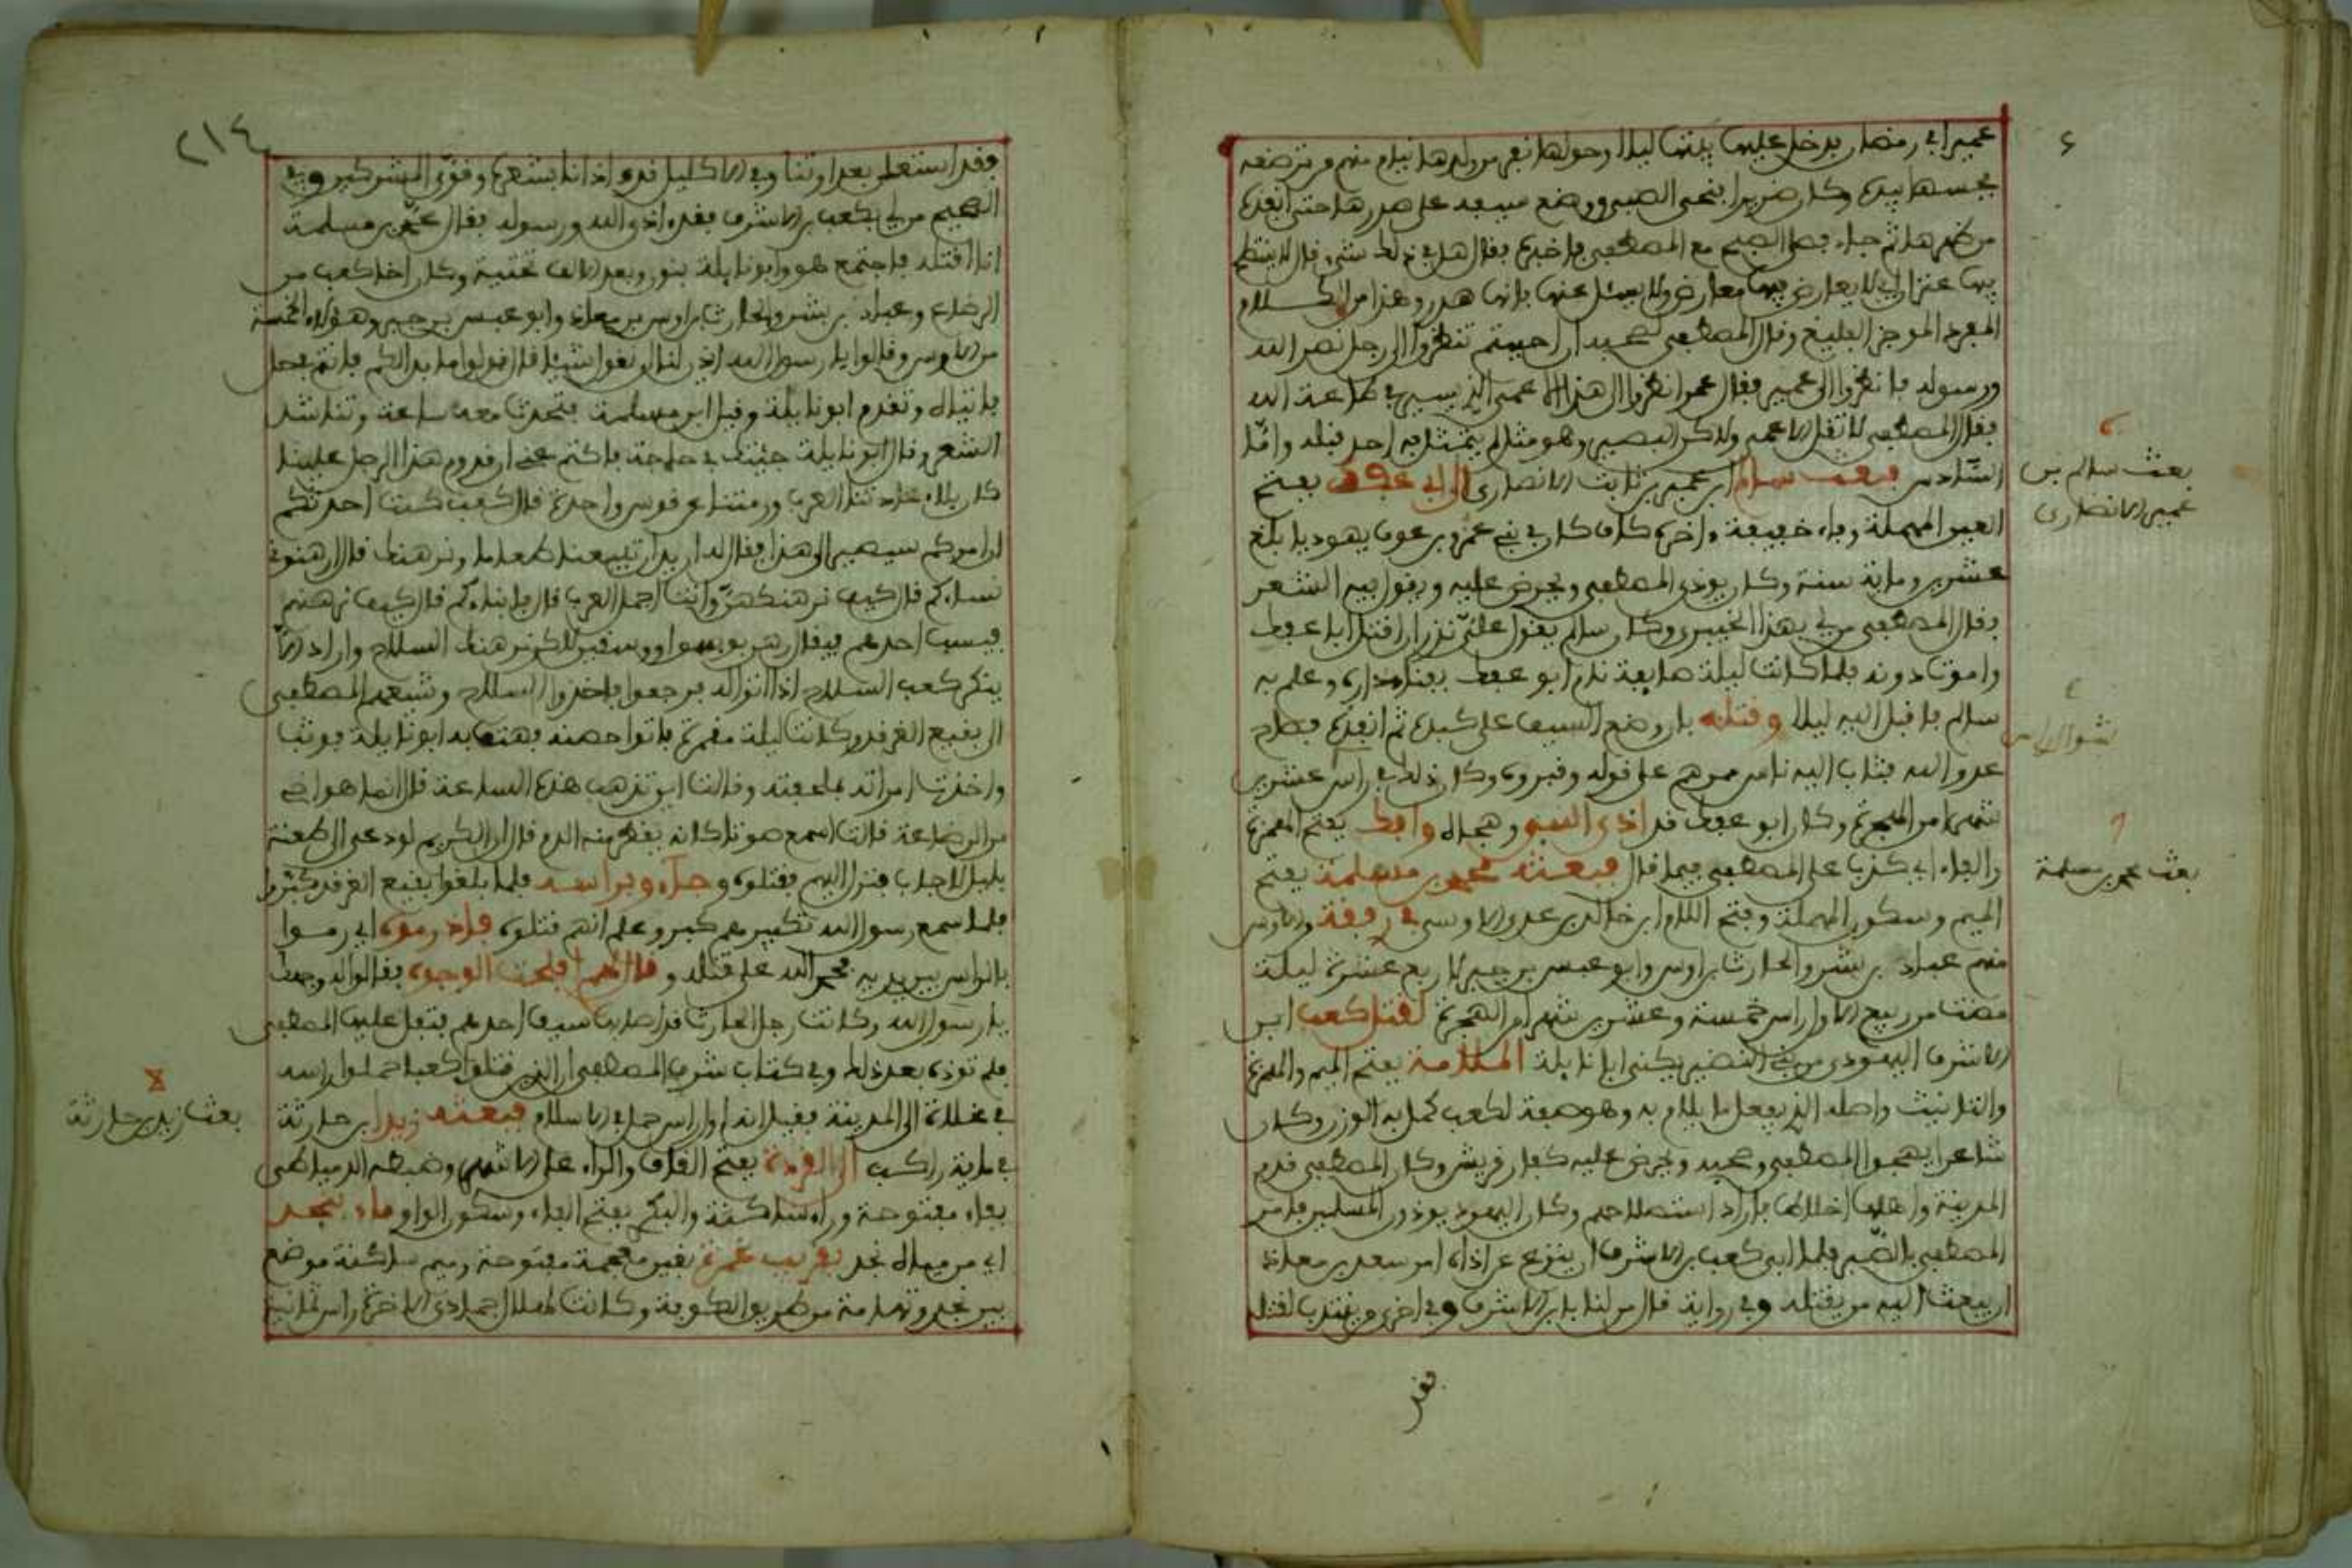 عمير في رمضان فدخل عليها بيتها ليلا وحولها نفر من ولدها نيام منهم من ترضعه
فجسها بيده وكان ضريرا فنحى الصبي ووضع سيفه على صدرها حتى انفذه
من ظهرها ثم جاء فصلى الصبح مع المصطفى فاخبره فقال هل في ذلك شيء قال لا ينتطح
فيها عنزان اي لا يعارض فيها معارض ولا يسئل عنها فانها هدر وهذا من الكلام
المفرد الموجز البليغ وقال المصطفى لصحبه ان احببتم تنظروا الى رجل نصر الله
ورسوله فانظروا الى عمير فقال عمر انظروا الى هذا الاعمى الذي يسري في طاعة الله
فقال المصطفى لا تقل الاعمى ولاكن البصير وهو مثل لم يتمثل به احد قبله واما
السادس فبعث سالم ابن عمير بن ثابت الانصاري الى ابي عفك بفتح
العين المهملة وفاء خفيفة واخره كاف كان في بني عمرو بن عوف يهوديا بلغ
عشرين وماية سنة وكان يوذي المصطفى ويحرض عليه ويقول فيه الشعر
فقال المصطفى من لي بهذا الخبيث وكان سالم يقول علي نذر ان اقتل ابا عفك
واموت دونه فلما كانت ليلة صايفة نام ابو عفك بفناء داره وعلم به
سالم فاقبل اليه ليلا وقتله بان وضع السيف على كبده ثم انفذه فصاح
عدو الله فثاب اليه ناس ممن هم على قوله وقبروه وكان ذلك في راس عشرين
شهرا من الهجرة وكان ابو عفك قد اذى النبي وهجاه وافك بفتح الهمزة
والفاء اي كذب على المصطفى فيما قال فبعثه محمد بن مسلمة بفتح
الميم وسكون المهملة وفتح اللام ابن خالد بن عدي الاوسي في رفقة من الاوس
منهم عباد بن بشر والحارث بن اوس وابو عبس بن جبر لاربع عشرة ليلة
مضت من ربيع الاول راس خمسة وعشرين شهرا من الهجرة لقتل كعب ابن
الاشرف اليهودي من بني النضير يكنى ابا نايلة الملامة بفتح الميم والهمزة
والتانيث واصله الذي يفعل ما يلام به وهو صفة لكعب كمل به الوزن وكان
شاعرا يهجوا المصطفى وصحبه ويحرض عليه كفار قريش وكان المصطفى قدم
المدينة واهلها اخلاط فاراد استصلاحهم وكان اليهود يوذون المسلمين فامر
المصطفى بالصبر فلما ابى كعب بن الاشرف ان ينزع عن اذاه امر سعد بن معاذ
ان يبعث اليه من يقتله وفي رواية قال من لنا بابن الاشرف وفي اخرى من ينتدب لقتله
فقد
٤
٦
بعث سالم بن
عمير الانصاري
٧
بعث محمد بن مسلمة
٢١٤
فقد استعلن بعداوتنا وفي الاكليل فقد اذانا بشعره وقوى المشركين وفي
الصحيح من لي بكعب بن الاشرف فقد اذى الله ورسوله فقال محمد بن مسلمة
انا اقتله فاجتمع هو وابو نايلة بنون وبعد الالف تحتية وكان اخا كعب من
الرضاع وعباد بن بشر والحارث بن اوس بن معاذ وابو عبس بن جبر وهؤلاء الخمسة
من الاوس وقالوا يا رسول الله اذن لنا ان نقول شيئا قال قولوا ما بدا لكم فانتم في حل
فاتياه وتقدم ابو نايلة وقيل ابن مسلمة فتحدث معه ساعة وتناشد
الشعر وقال ابو نايلة جئتك في حاجة فاكتم عني ان قدوم هذا الرجل علينا
كان بلاء عادتنا العرب ورمتنا عن قوس واحدة قال كعب كنت احدثكم
ان امركم سيصير الى هذا فقال له اريد ان تبيعنا طعاما ونرهنك قال ارهنوني
نساءكم قال كيف نرهنكهن وانت اجمل العرب قال فابناءكم قال كيف نرهنهم
فيسب احدهم فيقال رهن بوسق او وسقين لاكن نرهنك السلاح واراد الا
ينكر كعب السلاح اذا اتوا له فرجعوا فاخذوا السلاح وشيعهم المصطفى
الى بقيع الغرقد وكانت ليلة مقمرة فاتوا حصنه فهتف به ابو نايلة فوثب
واخذت امراته بملحفته وقالت اين تذهب هذه الساعة قال انما هو اخي
من الرضاعة قالت اسمع صوتا كانه يقطر منه الدم قال ان الكريم لو دعي الى طعنة
بليل لاجاب فنزل اليهم فقتلوه وجاءوا براسه فلما بلغوا بقيع الغرقد كبروا
فلما سمع رسول الله تكبيرهم كبر وعلم انهم قتلوه فاذ رموه اي رموا
بالراس بين يديه فحمد الله على قتله وقال لهم افلحت الوجوه فقالوا له ووجهك
يا رسول الله وكانت رجل الحارث قد اصابها سيف احدهم فتفل عليها المصطفى
فلم توذه بعد ذلك وفي كتاب شرف المصطفى ان الذين قتلوا كعبا حملوا راسه
في مخلاة الى المدينة فقيل انه اول راس حمل في الاسلام فبعثه زيد ابن حارثة
في ماية راكب الى القردة بفتح القاف والراء على الاشهر وضبطه الدمياطي
بفاء مفتوحة وراء ساكنة والبكري بفتح الفاء وسكون الواو ماء نجد
اي من مياه نجد بقرب غمرة بغين معجمة مفتوحة وميم ساكنة موضع
بين نجد وتهامة من طريق الكوفة وكانت لهلال جمادى الاخرة راس ثمانية
٨
بعث زيد بن حارثة